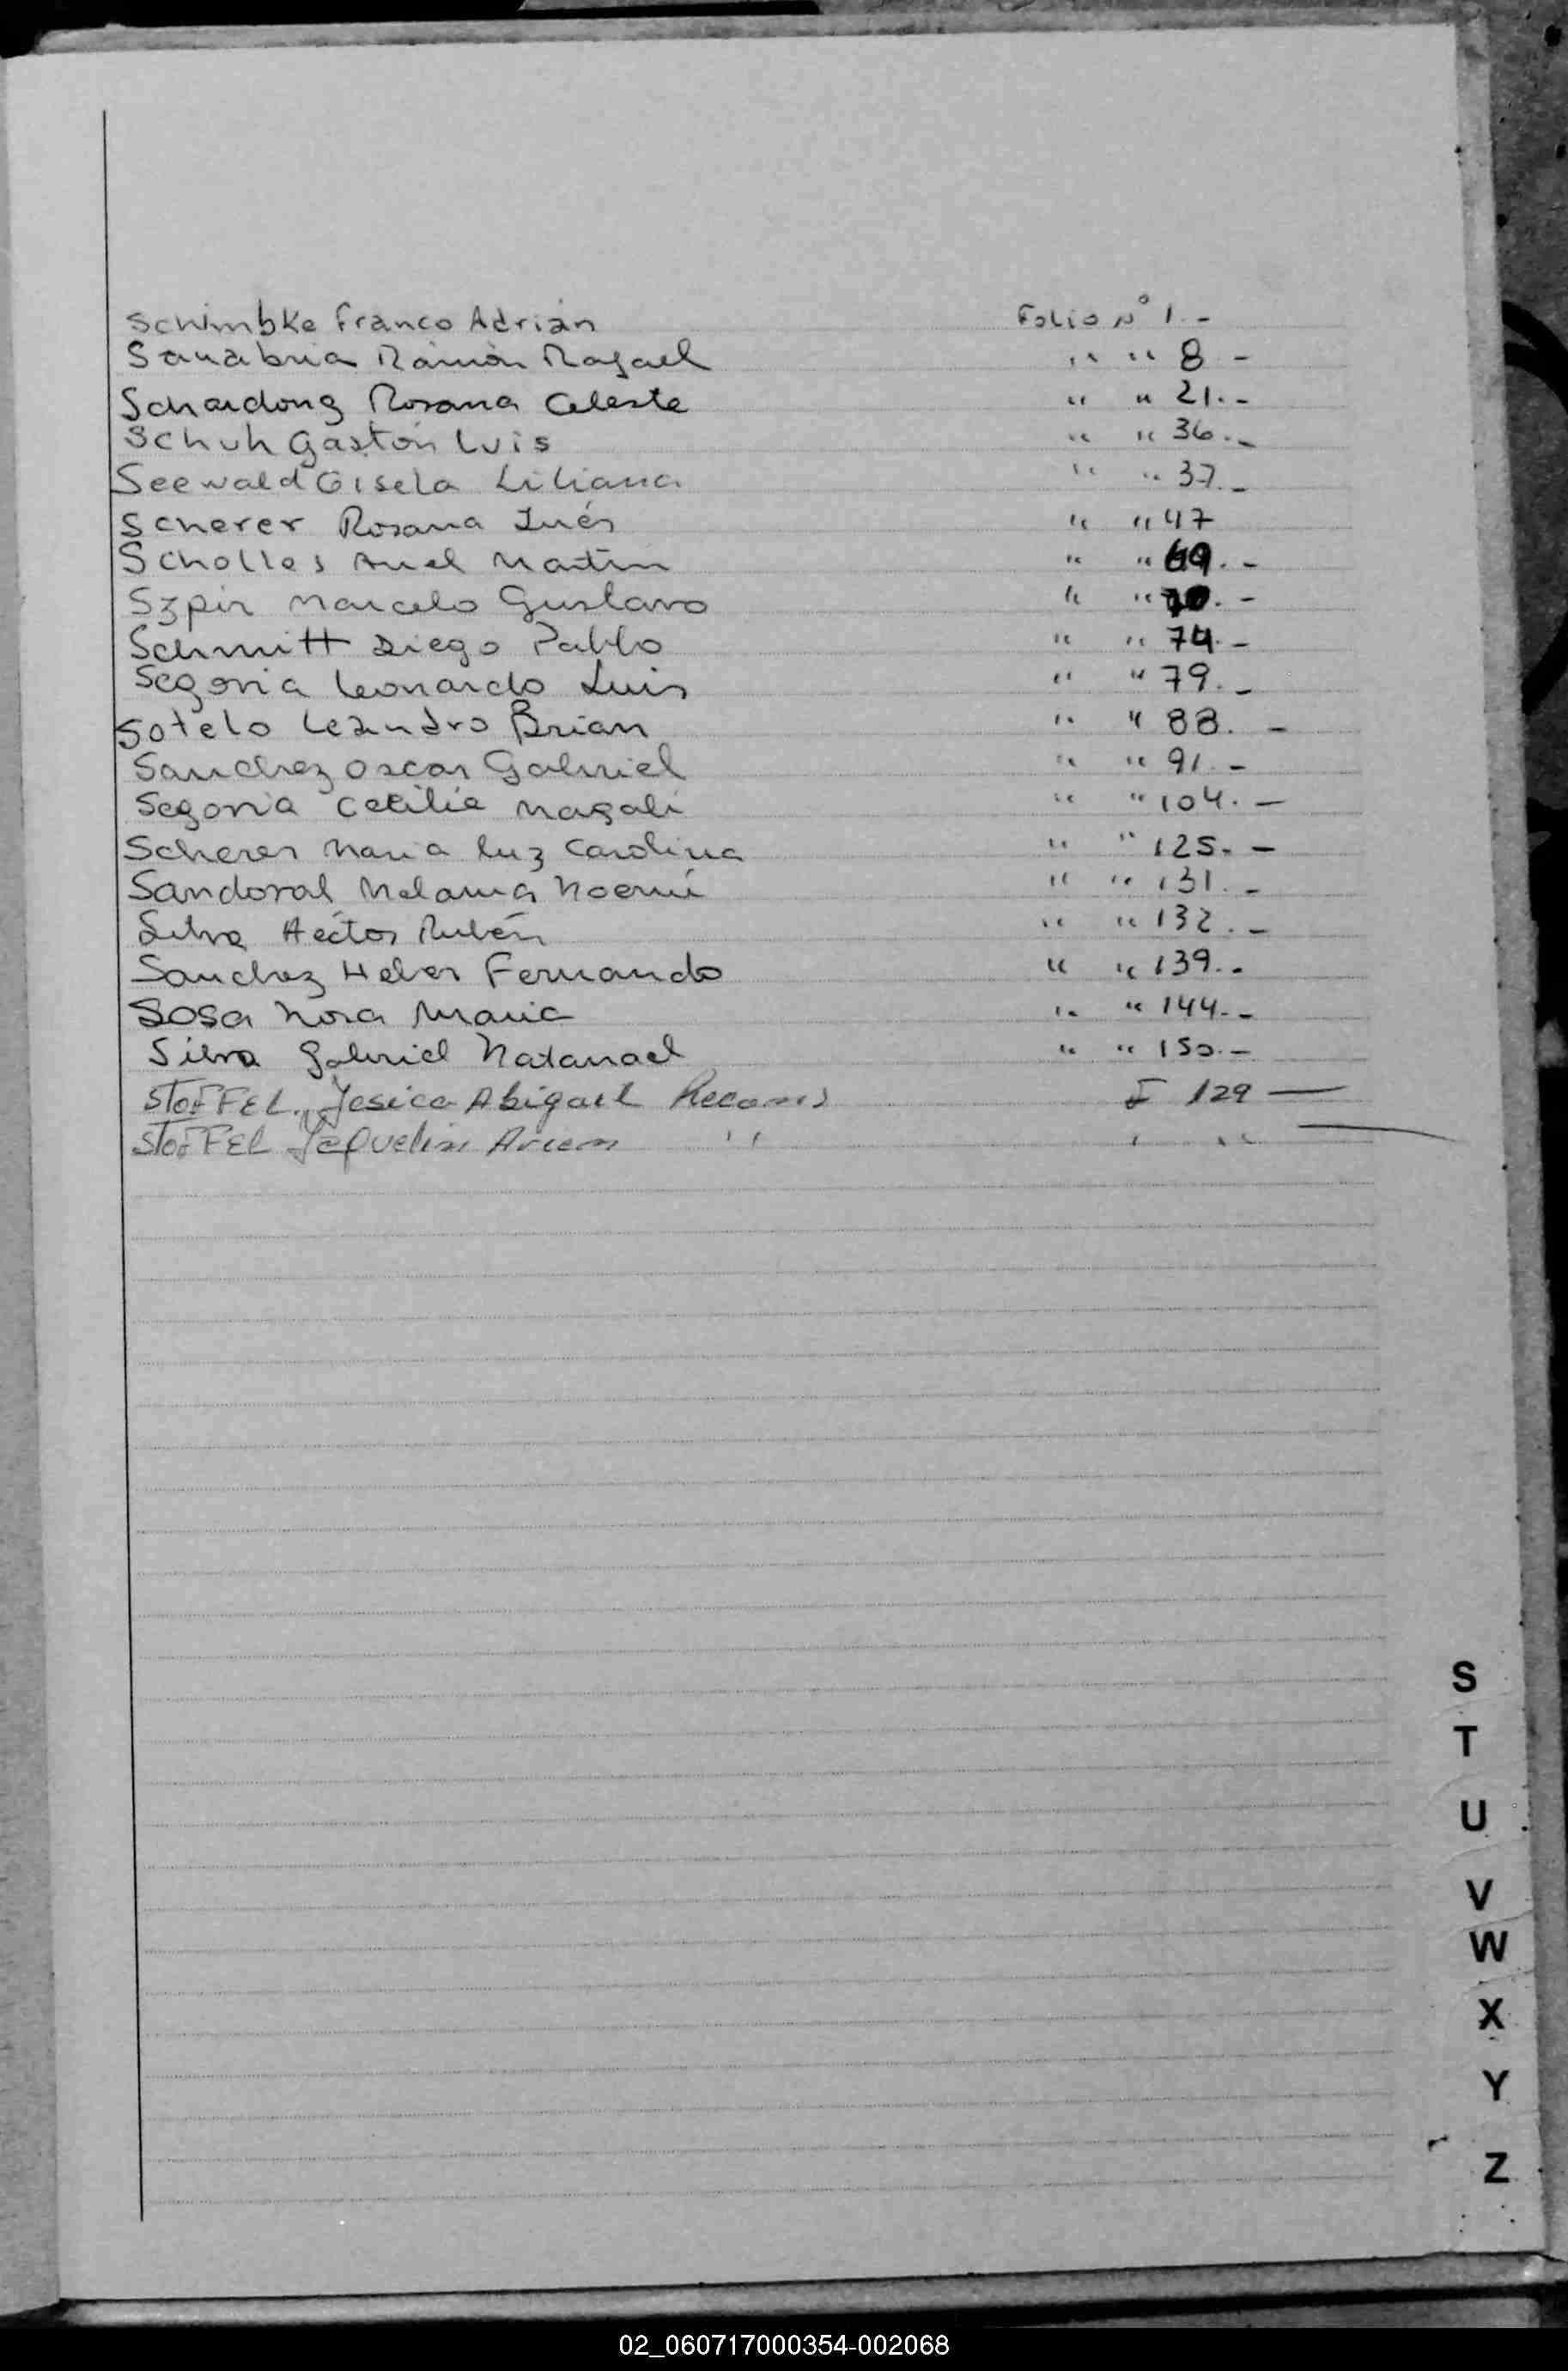 Schimbke Franco Adrián Folio Nº 1.-
Sanabria Ramón Rafael " " 8 -
Schardong Rosana Celeste " " 21.-
Schuh Gastón Luis " " 36.-
Seewald Gisela Liliana " " 37.-
Scherer Rosana Inés " " 47
Scholles Ariel Martin " " 69.-
Szpir Marcelo Gustavo " " 70.-
Schmitt Diego Pablo " " 74.-
Segovia Leonardo Luis " " 79.-
Sotelo Leandro Brian " " 88.-
Sanchez Oscar Gabriel " " 91.-
Segovia Cecilia Magali " " 104.-
Scherer Maria Luz Carolina " " 125.-
Sandoval Melania Noemí " " 131.-
Silva Héctor Rubén " " 132.-
Sanchez Heber Fernando " " 139.-
Sosa Nora Maria " " 144.-
Silva Gabriel Natanael " " 150.-
STOFFEL, Jesica Abigail F 129 —
STOFFEL Jaquelin " " —
S
T
U
V
W
X
Y
Z
02_060717000354-002068